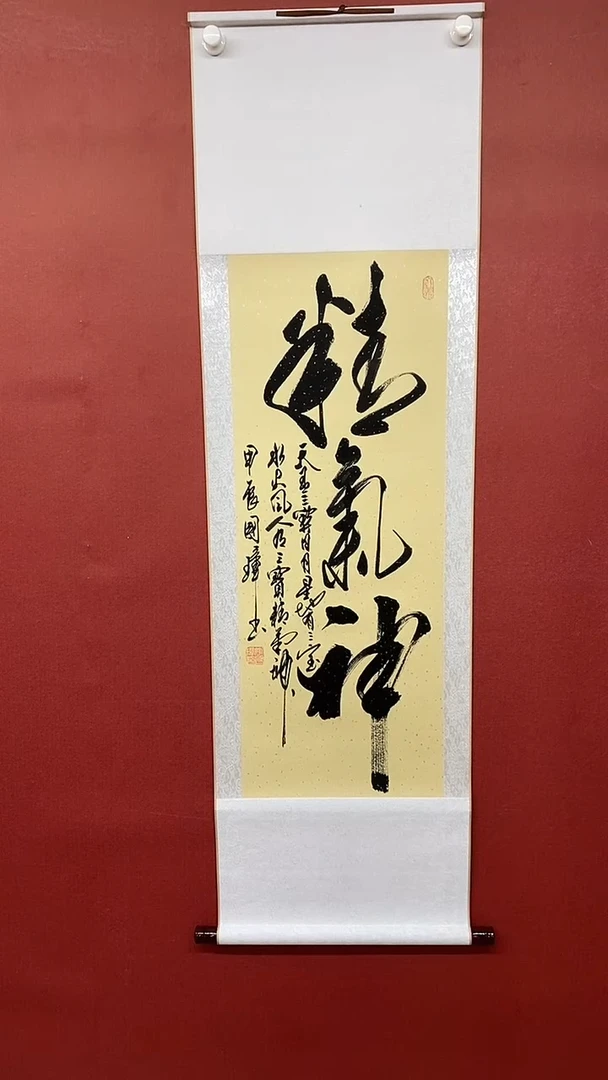 精氣神
天有三寶日月星地有三宝
水火風人有三寶精氣神
甲辰國璋书